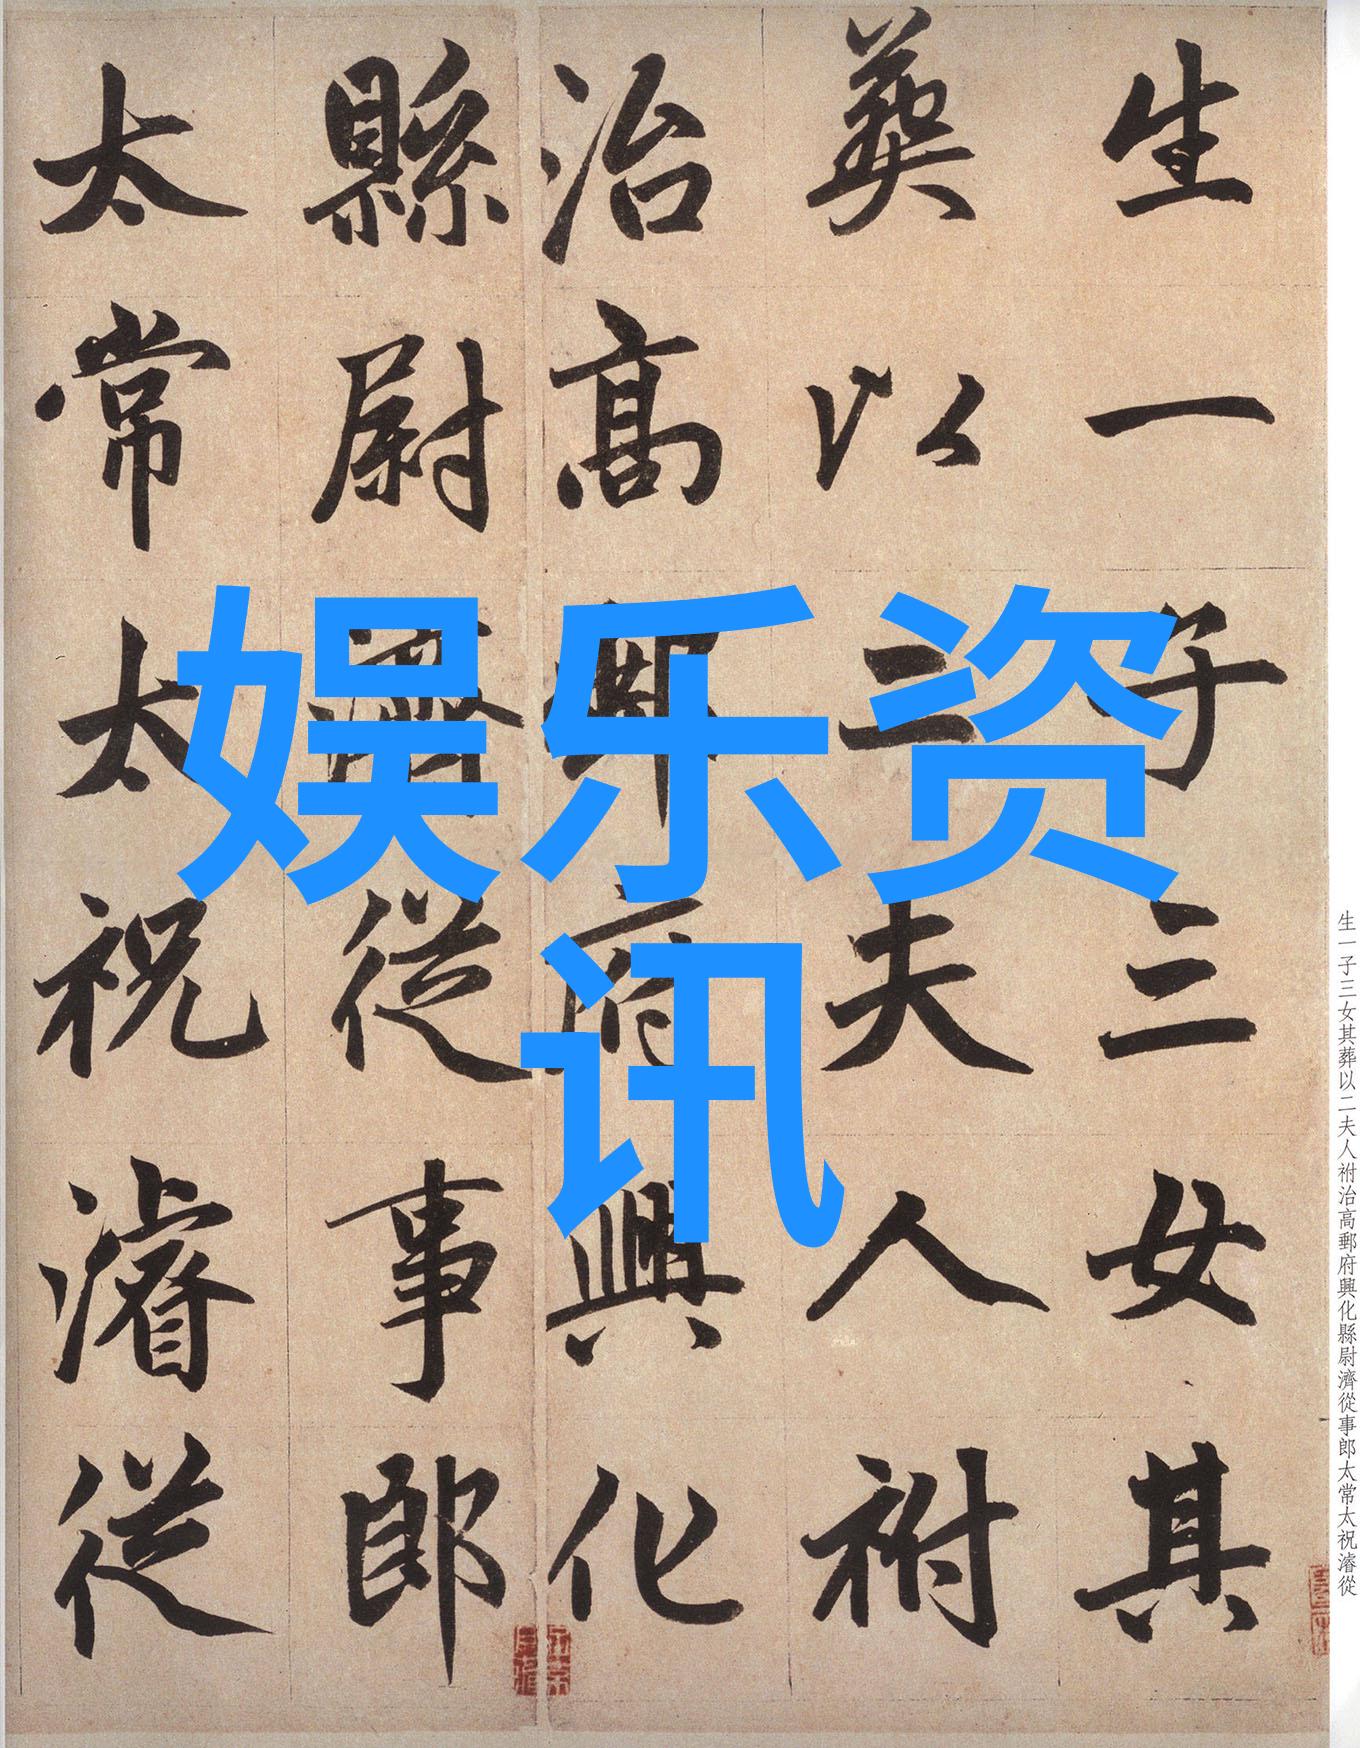 生一子三女其
葬以二夫人祔
治高郵府興化
縣尉濟從事郎
太常太祝濬從
娱乐资
讯
生一子三女其葬以二夫人祔治高郵府興化縣尉濟從事郎太常太祝濬從